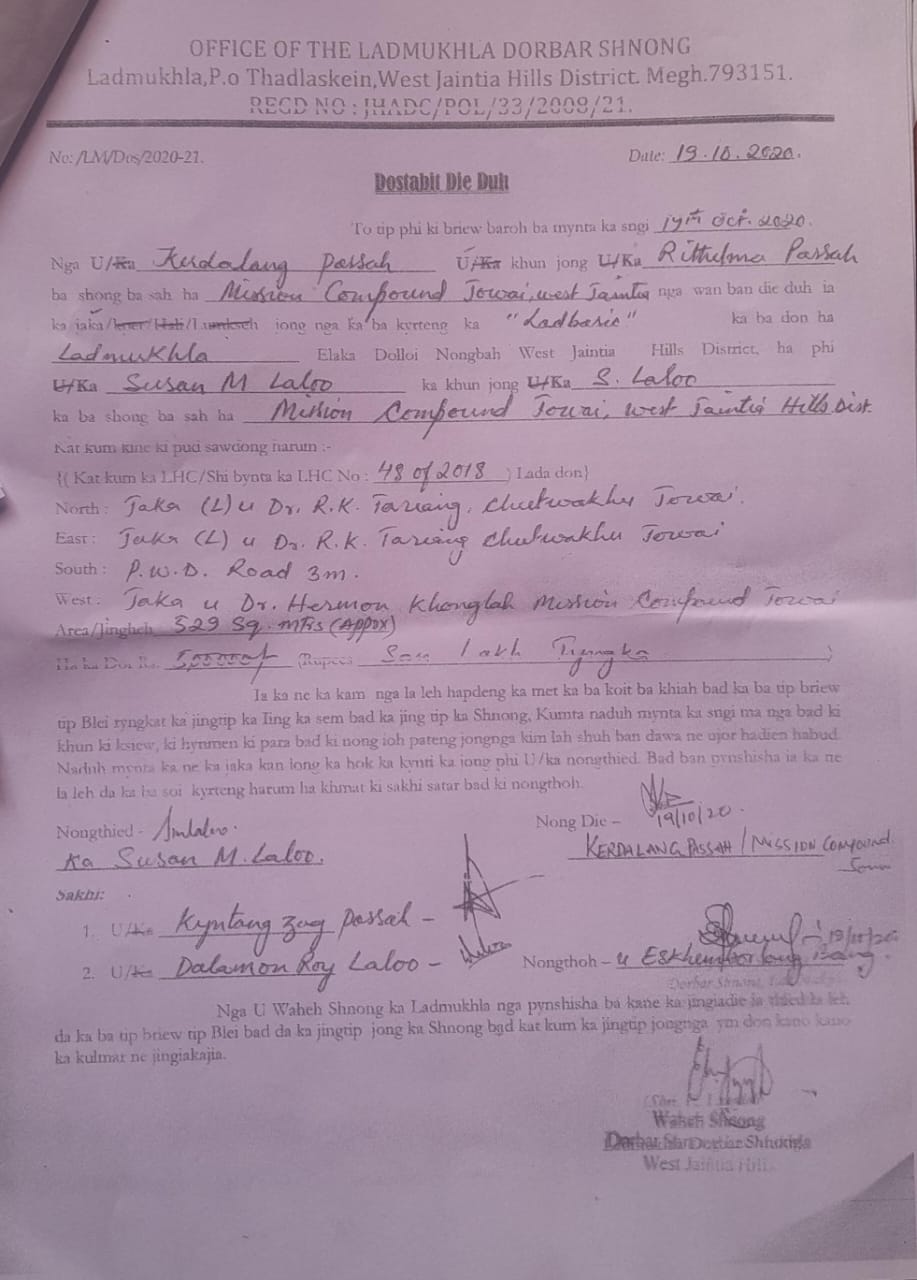 OFFICE OF THE LADMUKHLA DORBAR SHNONG
Ladmukhla,P.o Thadlaskein,West Jaintia Hills District. Megh.793151.
REGD NO : JHADC/POL/33/2009/21.
No: /LM/Dos/2020-21. Date: 19.10.2020.
Dostabit Die Duh
To tip phi ki briew baroh ba mynta ka sngi 19th Oct. 2020.
Nga U/Ka Kerdalang Passah U/Ka khun jong U/Ka Rithelma Passah
ba shong ba sah ha Mission Compound Jowai, west Jaintia nga wan ban die duh ia
ka jaka/kner/Hali/Lumkseh jong nga ka ba kyrteng ka "Ladbasic" ka ba don ha
Ladmukhla Elaka Dolloi Nongbah West Jaintia Hills District, ha phi
U/Ka Susan M Laloo ka khun jong U/Ka S. Laloo
ka ba shong ba sah ha Mission Compound Jowai, west Jaintia Hills Dist.
Kat kum kine ki pud sawdong harum :-
{( Kat kum ka LHC/Shi bynta ka LHC No : 48 of 2018 ) Lada don}
North : Jaka (L) u Dr. R.K. Tariang, Chutwakhu Jowai.
East : Jaka (L) u Dr. R.K. Tariang Chutwakhu Jowai
South : P.W.D. Road 3m.
West : Jaka u Dr. Hermon Khonglah Mission Compound Jowai
Area/Jingheh 529 Sq. mtrs (Appox)
Ha ka Dor Rs. (Rupees San lakh Tyngka )
Ia ka ne ka kam nga la leh hapdeng ka met ka ba koit ba khiah bad ka ba tip briew
tip Blei ryngkat ka jingtip ka Iing ka sem bad ka jing tip ka Shnong, Kumta naduh mynta ka sngi ma nga bad ki
khun ki ksiew, ki hynmen ki para bad ki nong ioh pateng jongnga kim lah shuh ban dawa ne ujor hadien habud.
Naduh mynta ka ne ka jaka kan long ka hok ka kynti ka jong phi U/ka nongthied. Bad ban pynshisha ia ka ne
la leh da ka ba soi kyrteng harum ha khmat ki sakhi satar bad ki nongthoh.
Nongthied - Smlaloo. Nong Die – 19/10/20.
Ka Susan M. Laloo. KERDALANG PASSAH / MISSION COMPOUND
Sakhi:
1. U/Ka Kyntang Passah –
2. U/Ka Dalamon Roy Laloo – Nongthoh – u
Dorbar Shnong,
Nga U Waheh Shnong ka Ladmukhla nga pynshisha ba kane ka jingiadie ia thied la leh
da ka ba tip briew tip Blei bad da ka jingtip jong ka Shnong bad kat kum ka jingtip jongnga ym don kano kano
ka kulmar ne jingiakajia.
Waheh Shnong
West Jaintia Hills